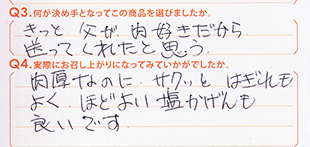 Q3.何が決め手となってこの商品を選びましたか。
きっと 父が 肉好きだから
送ってくれたと思う.
Q4.実際にお召し上がりになってみていかがでしたか。
肉厚なのに サクッと はぎれも
よく ほどよい 塩かげんも
良いです